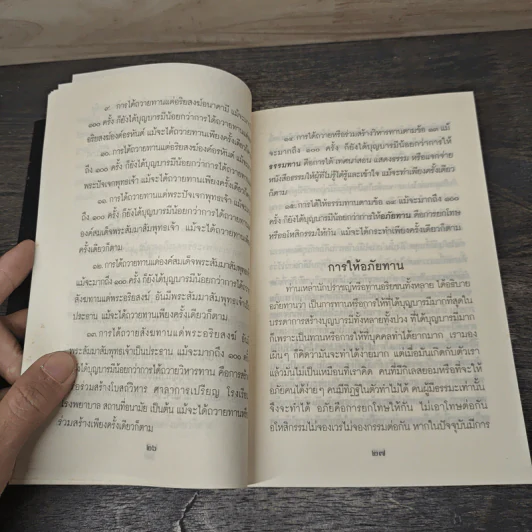 ๙. การได้ถวายทานแด่อริยสงฆ์อนาคามี แม้จะมาก
๑๐๐ ครั้ง ก็ยังได้บุญบารมีน้อยกว่าการได้ถวายทานแด่
อริยสงฆ์องค์อรหันต์ แม้จะได้ถวายทานเพียงครั้งเดียว
การได้ถวายทานแด่อริยสงฆ์องค์อรหันต์ แม้
ถึง ๑๐๐ ครั้ง ก็ยังได้บุญบารมีน้อยกว่าการได้ถวาย
พระปัจเจกพุทธเจ้า แม้จะได้ถวายทานเพียงครั้งเดียว
การได้ถวายทานแด่พระปัจเจกพุทธเจ้า แม้
ถึง ๑๐๐ ครั้ง ก็ยังได้บุญบารมีน้อยกว่าการได้ถวายทาน
องค์สมเด็จพระสัมมาสัมพุทธเจ้า แม้จะได้ถวายทานเพียง
ครั้งเดียวก็ตาม
๑๒. การได้ถวายทานแด่องค์สมเด็จพระสัมมาสัมพุทธเจ้า
ถึง ๑๐๐ ครั้ง ก็ยังได้บุญบารมีน้อยกว่าการได้ถวาย
สังฆทานแด่พระอริยสงฆ์ อันมีพระสัมมาสัมพุทธเจ้า
ประธาน แม้จะได้ถวายทานเพียงครั้งเดียวก็ตาม
๑๓. การได้ถวายสังฆทานแด่พระอริยสงฆ์ อัน
สัมมาสัมพุทธเจ้าเป็นประธาน แม้จะมากถึง ๑๐๐ ครั้ง
ก็ยังได้บุญบารมีน้อยกว่าการได้ถวายวิหารทาน คือการสร้าง
หรือร่วมสร้างโบสถ์วิหาร ศาลาการเปรียญ โรงเรียน
โรงพยาบาล สถานที่อนามัย เป็นต้น แม้จะได้ถวายทาน
ร่วมสร้างเพียงครั้งเดียวก็ตาม
๒๖
๑๔. การได้ถวายหรือร่วมสร้างวิหารทานตามข้อ ๑๓ แม้
จะมากถึง ๑๐๐ ครั้ง ก็ยังได้บุญบารมีน้อยกว่าการให้
ธรรมทาน คือการได้เทศนาสอน แสดงธรรม หรือแจกจ่าย
หนังสือธรรมให้ผู้ที่ไม่รู้ได้รู้และเข้าใจ แม้จะทำเพียงครั้งเดียว
ก็ตาม
๑๕. การได้ให้ธรรมทานตามข้อ ๑๔ แม้จะมากถึง ๑๐๐
ครั้ง ก็ยังได้บุญบารมีน้อยกว่าการให้อภัยทาน คือการยกโทษ
หรืออโหสิกรรมให้กัน แม้จะได้กระทำเพียงครั้งเดียวก็ตาม
การให้อภัยทาน
ท่านเหล่านักปราชญ์หรือท่านอริยชนทั้งหลาย ได้อธิบาย
อภัยทานว่า เป็นการทานหรือการให้ที่ได้บุญบารมีมากที่สุดใน
บรรดาการสร้างบุญบารมีทั้งหลายทั้งปวง ที่ได้บุญบารมีมาก
ก็เพราะเป็นทานหรือการให้ที่บุคคลทำได้ยากมาก เรามอง
เผินๆ ก็คิดว่ามันจะทำได้ง่ายมาก แต่เมื่อมันเกิดกับตัวเรา
แล้วมันไม่เป็นเหมือนที่เราคิด คนที่มีกิเลสย่อมหรือที่จะให้
อภัยคนได้ง่ายๆ คนมีทิฏฐิในตัวทำไม่ได้ คนผู้มีธรรมะเท่านั้น
จึงจะทำได้ อภัยคือการยกโทษให้กัน ไม่เอาโทษต่อกัน
อโหสิกรรมไม่จองเวรไม่จองกรรมต่อกัน หากในปัจจุบันมีการ
๒๗